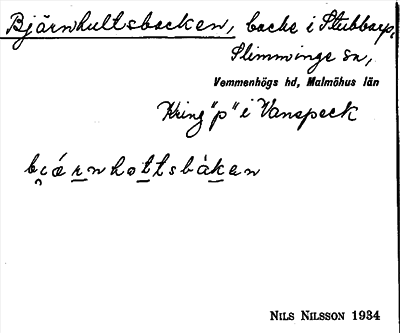 Bjärnhultsbacken, backe i Stubbarp,
Slimminge sn,
Vemmenhögs hd, Malmöhus län
Kring "p" i Vanspeck
bi̯árnhottsbàkan
NILS NILSSON 1934